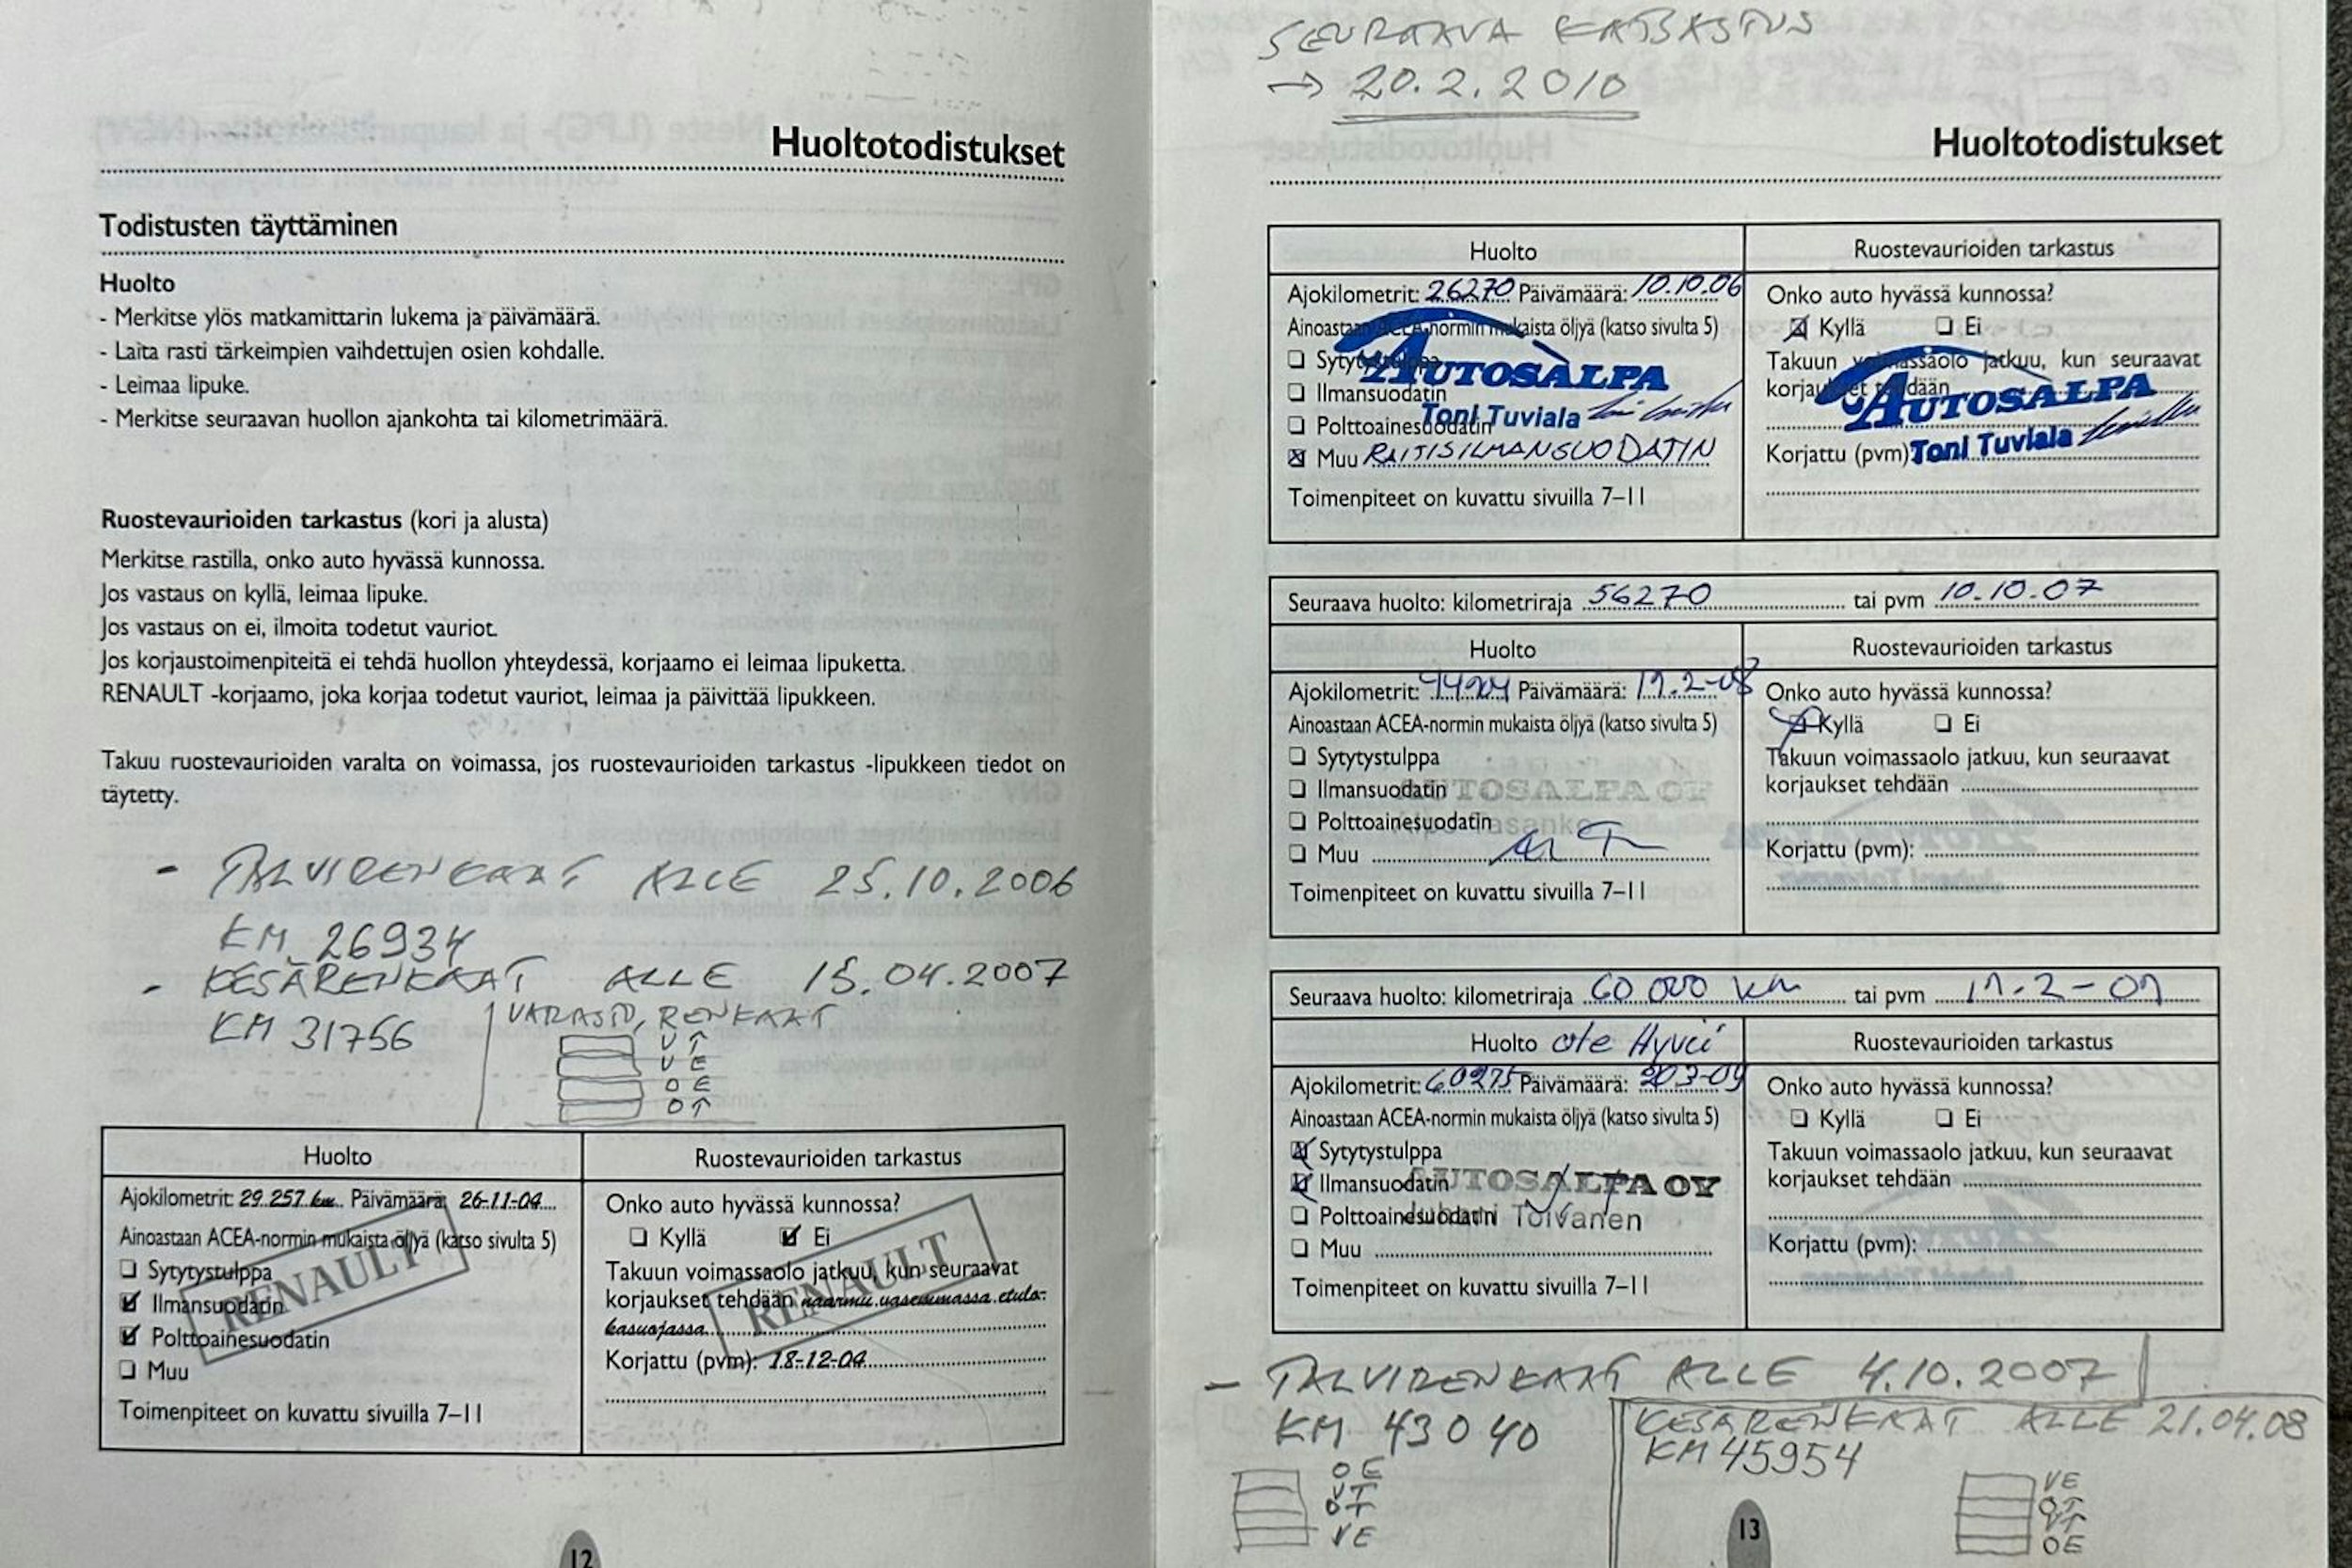 Huoltotodistukset
Todistusten täyttäminen
Huolto
- Merkitse ylös matkamittarin lukema ja päivämäärä.
- Laita rasti tärkeimpien vaihdettujen osien kohdalle.
- Leimaa lipuke.
- Merkitse seuraavan huollon ajankohta tai kilometrimäärä.
Ruostevaurioiden tarkastus (kori ja alusta)
Merkitse rastilla, onko auto hyvässä kunnossa.
Jos vastaus on kyllä, leimaa lipuke.
Jos vastaus on ei, ilmoita todetut vauriot.
Jos korjaustoimenpiteitä ei tehdä huollon yhteydessä, korjaamo ei leimaa lipuketta.
RENAULT -korjaamo, joka korjaa todetut vauriot, leimaa ja päivittää lipukkeen.
Takuu ruostevaurioiden varalta on voimassa, jos ruostevaurioiden tarkastus -lipukkeen tiedot on
täytetty.
- TALVIRENKAAT ALLE 25.10.2006
KM 26934
- KESÄRENKAAT ALLE 15.04.2007
KM 31756
VARASTO, RENKAAT
V T
V E
O E
O T
Huolto
Ajokilometrit: 29.257 km Päivämäärä: 26-11-04
Ainoastaan ACEA-normin mukaista öljyä (katso sivulta 5)
Sytytystulppa
Ilmansuodatin
Polttoainesuodatin
Muu
RENAULT
Toimenpiteet on kuvattu sivuilla 7–11
Ruostevaurioiden tarkastus
Onko auto hyvässä kunnossa?
Kyllä Ei
Takuun voimassaolo jatkuu, kun seuraavat
korjaukset tehdään naarmu vasemmassa etulo-
kasuojassa
Korjattu (pvm): 18-12-04
RENAULT
12
SEURAAVA KATSASTUS
→ 20.2.2010
Huoltotodistukset
Huolto
Ajokilometrit: 26270 Päivämäärä: 10.10.06
Ainoastaan ACEA-normin mukaista öljyä (katso sivulta 5)
Sytytystulppa
Ilmansuodatin
Polttoainesuodatin
AUTOSALPA
Toni Tuviala
Muu RAITISILMANSUODATIN
Toimenpiteet on kuvattu sivuilla 7–11
Ruostevaurioiden tarkastus
Onko auto hyvässä kunnossa?
Kyllä Ei
Takuun voimassaolo jatkuu, kun seuraavat
korjaukset tehdään
AUTOSALPA
Toni Tuviala
Korjattu (pvm)
Seuraava huolto: kilometriraja 56270 tai pvm 10.10.07
Huolto
Ajokilometrit: Päivämäärä: 19.2-08
Ainoastaan ACEA-normin mukaista öljyä (katso sivulta 5)
Sytytystulppa
Ilmansuodatin
AUTOSALPA OY
Polttoainesuodatin
Muu
Toimenpiteet on kuvattu sivuilla 7–11
Ruostevaurioiden tarkastus
Onko auto hyvässä kunnossa?
Kyllä Ei
Takuun voimassaolo jatkuu, kun seuraavat
korjaukset tehdään
Korjattu (pvm):
Seuraava huolto: kilometriraja 60 000 km tai pvm 19.2-09
Huolto ole Hyvä
Ajokilometrit: 60275 Päivämäärä: 20.3-09
Ainoastaan ACEA-normin mukaista öljyä (katso sivulta 5)
Sytytystulppa
Ilmansuodatin
AUTOSALPA OY
Polttoainesuodatin
Juhani Toivanen
Muu
Toimenpiteet on kuvattu sivuilla 7–11
Ruostevaurioiden tarkastus
Onko auto hyvässä kunnossa?
Kyllä Ei
Takuun voimassaolo jatkuu, kun seuraavat
korjaukset tehdään
Korjattu (pvm):
- TALVIRENKAAT ALLE 4.10.2007
KM 43040
OE
VT
OT
VE
KESÄRENKAAT ALLE 21.04.08
KM 45954
VE
OT
VT
OE
13